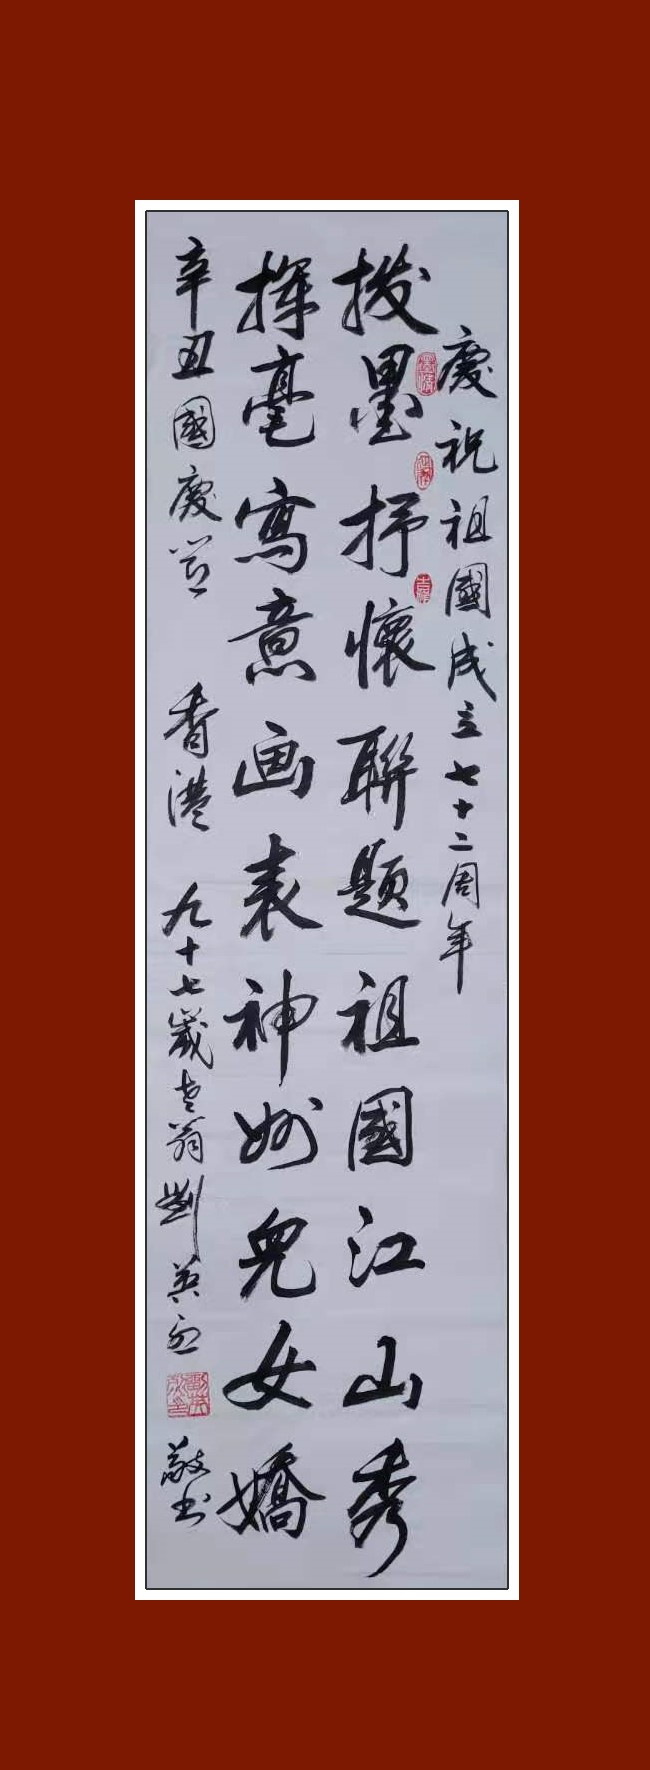 慶祝祖國成立七十二周年
拨墨抒懷聯題祖國江山秀
揮毫寫意画表神州兒女嬌
辛丑國慶 香港 九十七歲老翁劉英 敬书